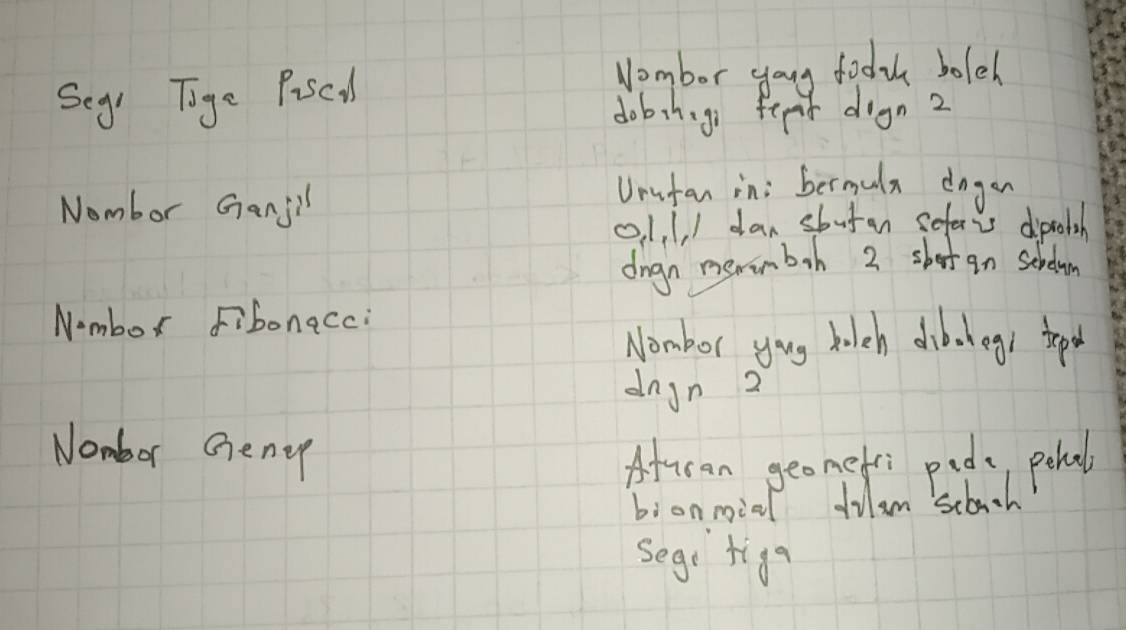 Segi Tiga Pascal
Nombor Ganjil
Nombor Fibonacci
Nombor Genap
Nombor yang tidak boleh
dibahagi tepat dngn 2
Urutan ini bermula dngan
0,1,1,1 dan sbutan seterus diproloh
dngn menambah 2 sbutan sebelum
Nombor yang boleh dibahagi tepat
dngn 2
Aturan geometri pada pekali
bionmial dalam sebuah
Segi tiga